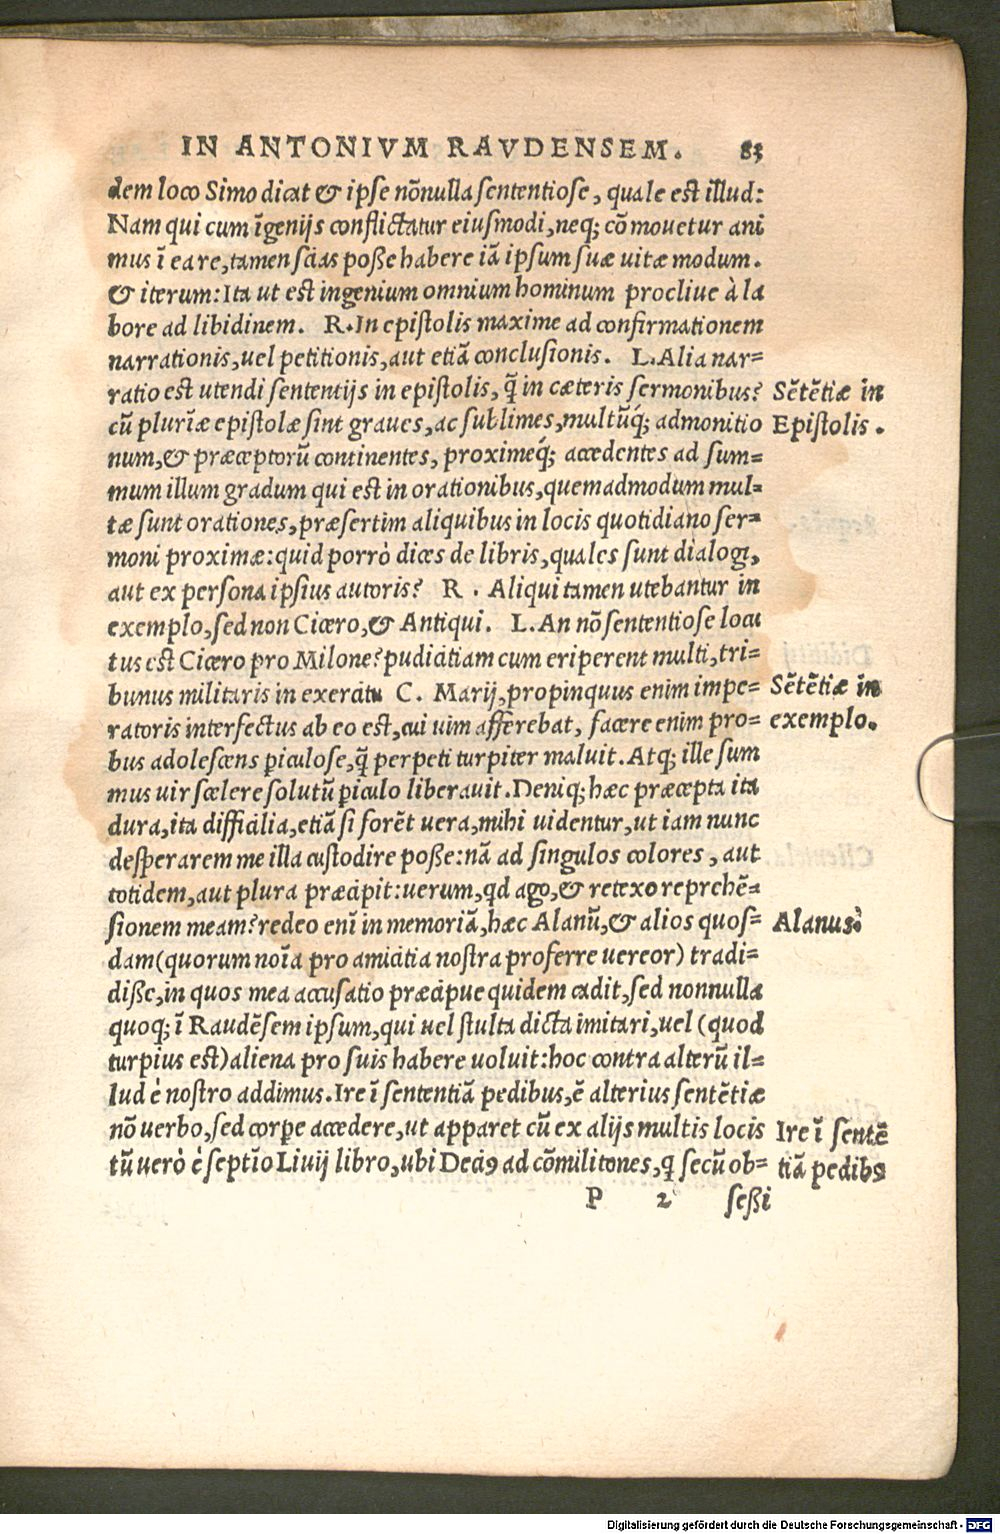 IN ANTONIVM RAVDENSEM. 83
dem loco Simo dicat & ipse nõnulla sententiose, quale est illud:
Nam qui cum ĩgenijs conflictatur eiusmodi, neq; cõmouetur ani
mus ĩ ea re, tamen scias poße habere iã ipsum suæ uitæ modum.
& iterum: Ita ut est ingenium omnium hominum procliue à la
bore ad libidinem. R. In epistolis maxime ad confirmationem
narrationis, uel petitionis, aut etiã conclusionis. L. Alia nar=
ratio est utendi sententijs in epistolis, q̃ in cæteris sermonibus?
Sẽtẽtiæ in
cũ plurĩæ epistolæ sint graues, ac sublimes, multũq́; admonitio
Epistolis.
num, & præceptorũ continentes, proximeq́; accedentes ad sum=
mum illum gradum qui est in orationibus, quemadmodum mul=
tæ sunt orationes, præsertim aliquibus in locis quotidiano ser=
moni proximæ: quid porrò dices de libris, quales sunt dialogi,
aut ex persona ipsius autoris? R. Aliqui tamen utebantur in
exemplo, sed non Cicero, & Antiqui. L. An nõ sententiose locu
tus est Cicero pro Milone? pudicitiam cum eriperent multi, tri=
bunus militaris in exercitu C. Marij, propinquus enim impe=
Sẽtẽtiæ in
ratoris interfectus ab eo est, cui uim afferebat, facere enim pro=
exemplo.
bus adolescens piculose, q̃ perpeti turpiter maluit. Atq; ille sum
mus uir scelere solutũ piculo liberauit. Deniq; hæc præcepta ita
dura, ita difficilia, etiã si forẽt uera, mihi uidentur, ut iam nunc
desperarem me illa custodire poße: nã ad singulos colores, aut
totidem, aut plura præcipit: uerum, qd ago, & retexo reprehẽ=
sionem meam? redeo enĩ in memoriã, hæc Alanũ, & alios quos=
Alanus.
dam (quorum noĩa pro amicitia nostra proferre uereor) tradi=
diße, in quos mea accusatio præcipue quidem cadit, sed nonnulla
quoq; ĩ Raudẽsem ipsum, qui uel stulta dicta imitari, uel (quod
turpius est) aliena pro suis habere uoluit: hoc contra alterũ il=
lud è nostro addimus. Ire ĩ sententiã pedibus, ẽ alterius sentẽtiæ
nõ uerbo, sed corpe accedere, ut apparet cũ ex alijs multis locis
Ire ĩ sentẽ
tũ uerò è septĩo Liuij libro, ubi Deciꝰ ad cõmilitones, q secũ ob=
tiã pedibꝰ
P 2 seßi